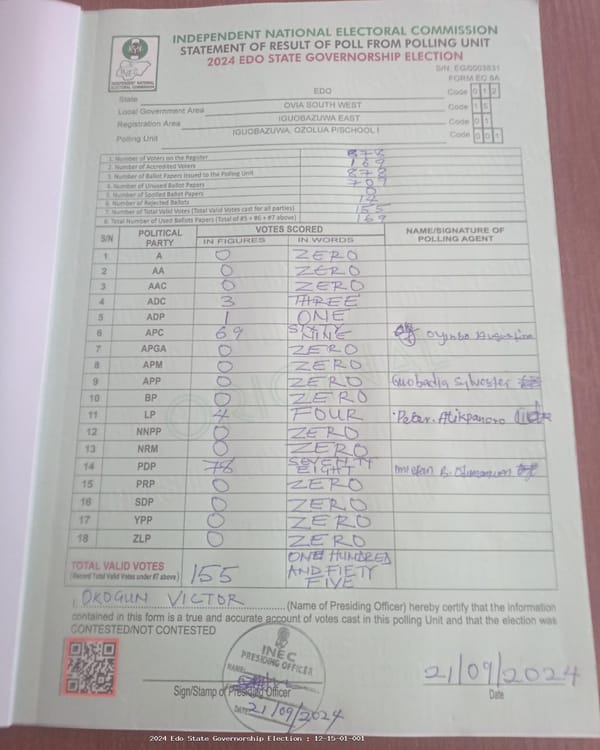 INDEPENDENT NATIONAL ELECTORAL COMMISSION
STATEMENT OF RESULT OF POLL FROM POLLING UNIT
2024 EDO STATE GOVERNORSHIP ELECTION
S/N: EG/0003831
FORM EC 8A
INEC
INDEPENDENT NATIONAL ELECTORAL COMMISSION
State EDO Code 0 1 2
Local Government Area OVIA SOUTH WEST Code 1 5
Registration Area IGUOBAZUWA EAST Code 0 1
Polling Unit IGUOBAZUWA, OZOLUA P/SCHOOL I Code 0 0 1
1. Number of Voters on the Register 878
2. Number of Accredited Voters 169
3. Number of Ballot Papers Issued to the Polling Unit 878
4. Number of Unused Ballot Papers 709
5. Number of Spoiled Ballot Papers 0
6. Number of Rejected Ballots 14
7. Number of Total Valid Votes (Total Valid Votes cast for all parties) 155
8. Total Number of Used Ballots Papers (Total of #5 + #6 + #7 above) 169
S/N POLITICAL PARTY VOTES SCORED NAME/SIGNATURE OF POLLING AGENT
IN FIGURES IN WORDS
1 A 0 ZERO
2 AA 0 ZERO
3 AAC 0 ZERO
4 ADC 3 THREE
5 ADP 1 ONE
6 APC 69 SIXTY NINE Augustine
7 APGA 0 ZERO
8 APM 0 ZERO
9 APP 0 ZERO Guobadia Sylvester
10 BP 0 ZERO
11 LP 4 FOUR Peter
12 NNPP 0 ZERO
13 NRM 0 ZERO
14 PDP 78 SEVENTY EIGHT
15 PRP 0 ZERO
16 SDP 0 ZERO
17 YPP 0 ZERO
18 ZLP 0 ZERO
TOTAL VALID VOTES 155 ONE HUNDRED AND FIFTY FIVE
(Record Total Valid Votes under #7 above)
I, OKOGUN VICTOR (Name of Presiding Officer) hereby certify that the information
contained in this form is a true and accurate account of votes cast in this polling Unit and that the election was
CONTESTED/NOT CONTESTED
INEC
PRESIDING OFFICER
NAME:
DATE: 21/09/2024
Sign/Stamp of Presiding Officer
21/09/2024
Date
ORIGINAL
2024 Edo State Governorship Election : 12-15-01-001